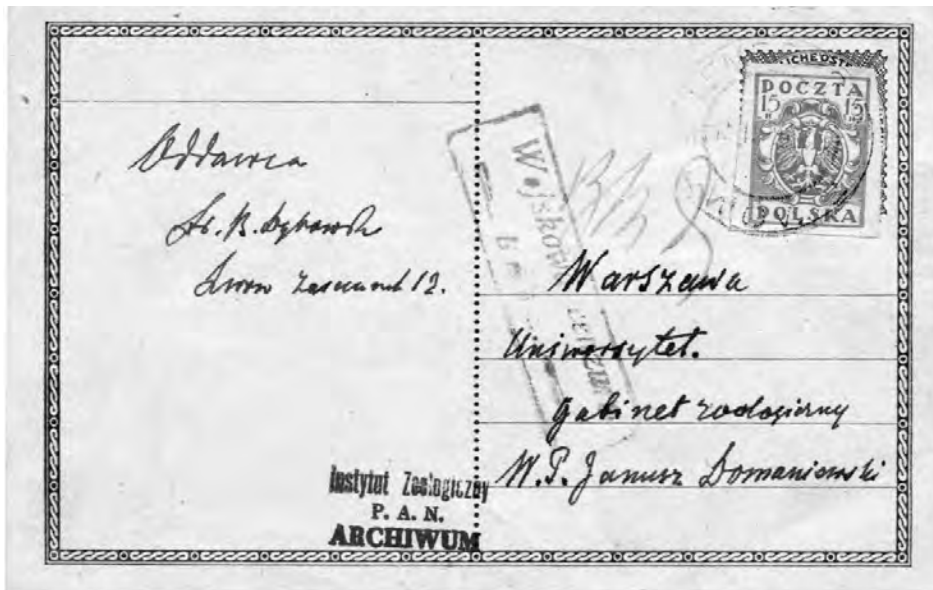 Oddawca
Dr. B. Dybowski
Lwow 12.
POCZTA
15 15
POLSKA
Wojskowa
Warszawa
Uniwersytet.
Gabinet zoologiczny
W.P. Janusz Domaniewski
Instytut Zoologiczny
P. A. N.
ARCHIWUM